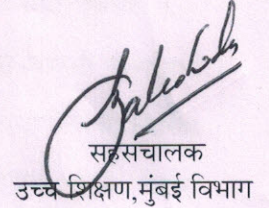 सहसंचालक
उच्च शिक्षण,मुंबई विभाग